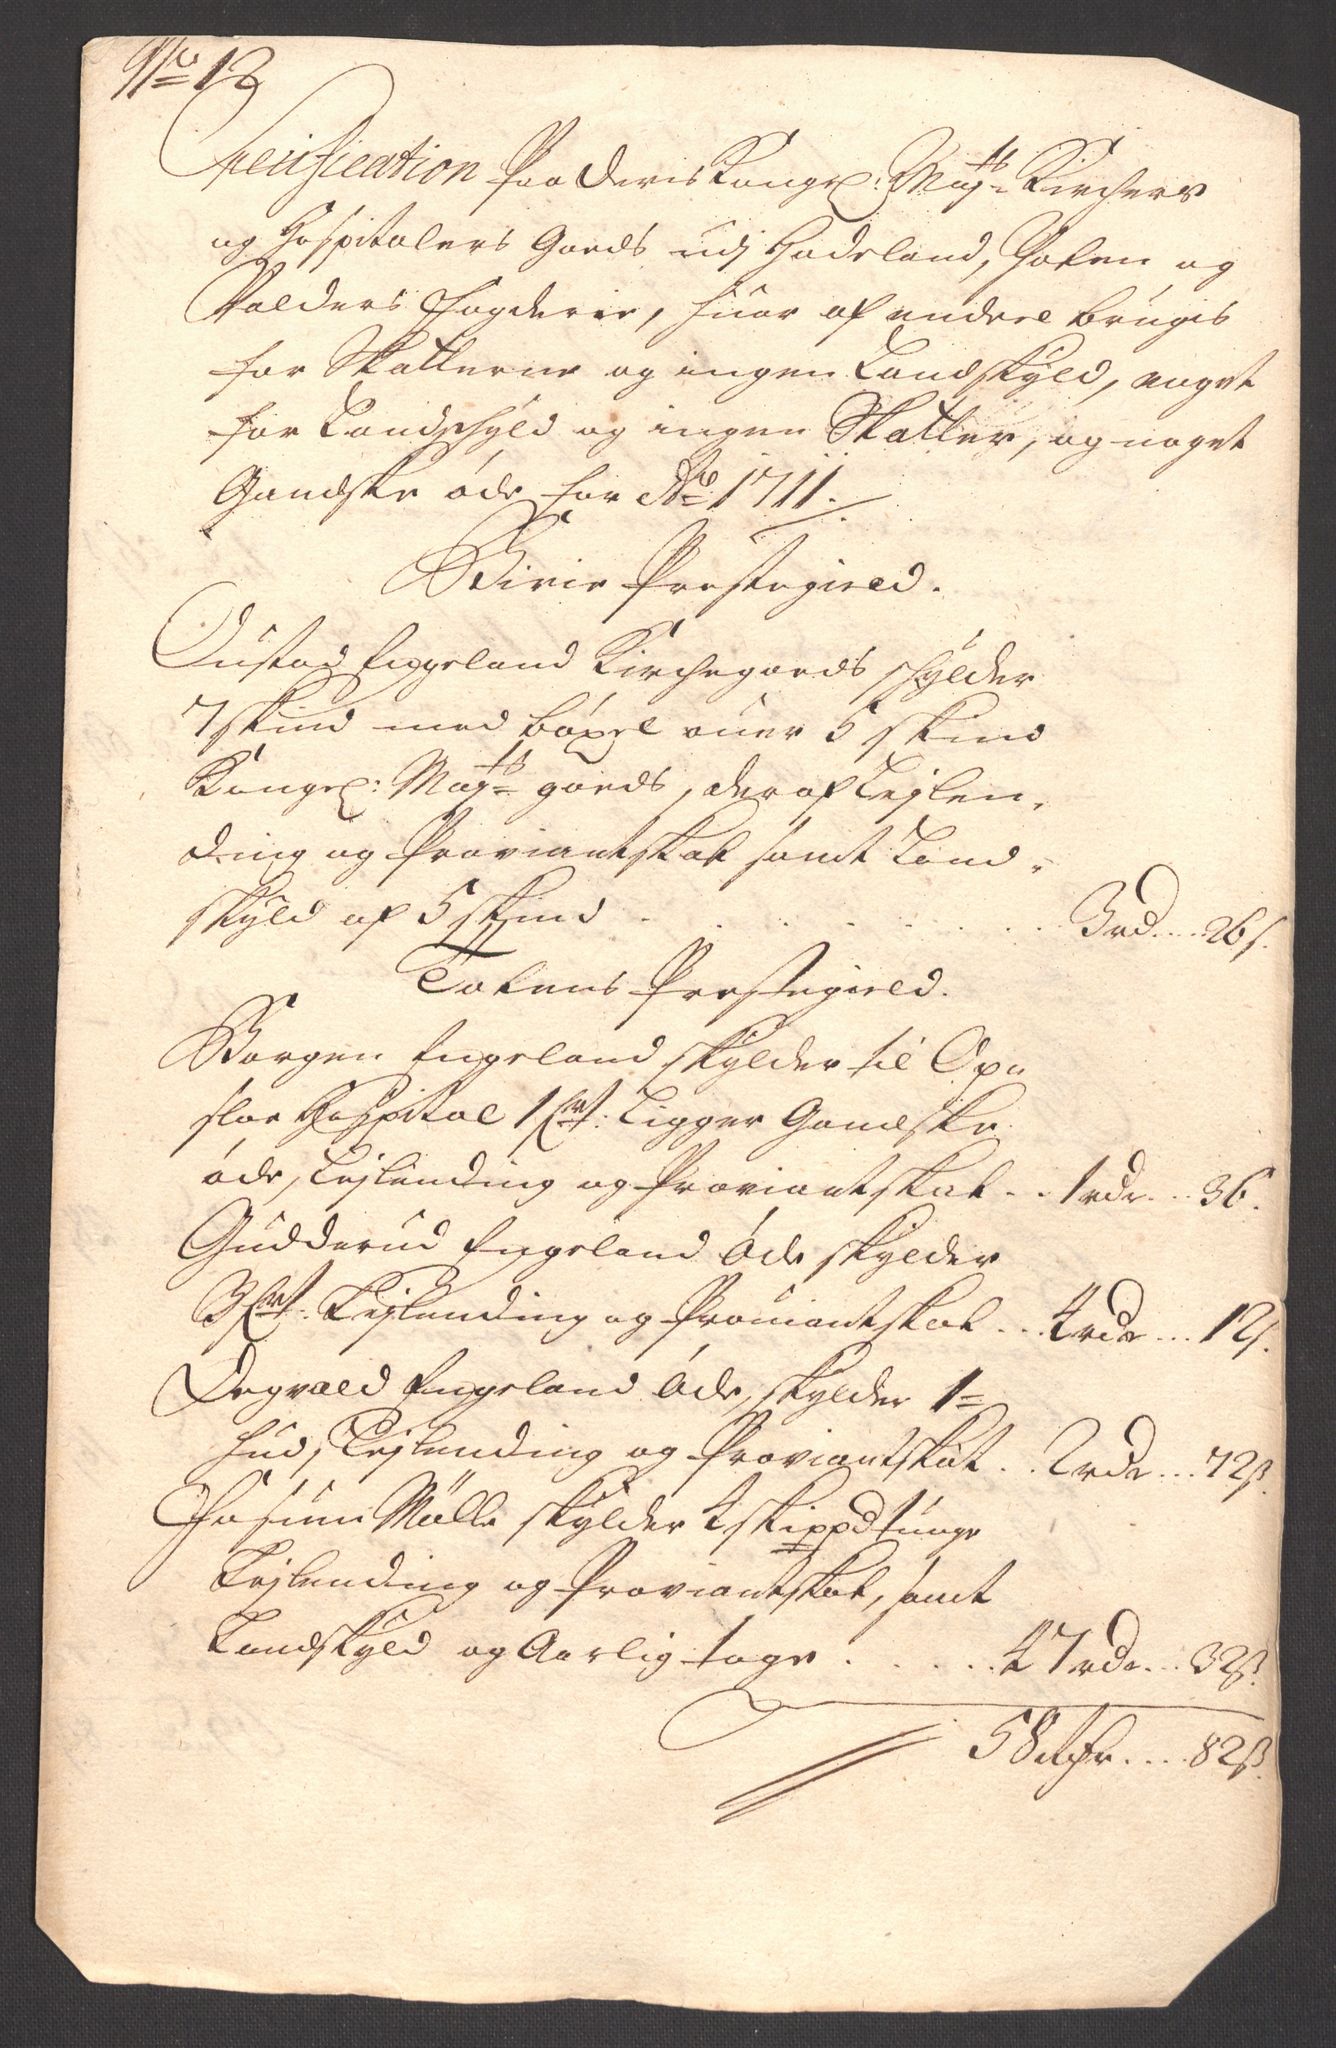 No 12
Specification Paa Deris Kongel: Mayts Kirchers
og Hospitalers Gods udj Hadeland, Toten og
Valders Fogderie, huor af endeel brugis
for Skatterne og ingen Landskyld, noget
for Landskyld og ingen Skatter, og noget
Gandske öde for Ao 1711.
Birie Prestegield.
Ousted Engeland Kirchegods skylder
7 skind med böxel ouer 5 skind
Kongel: Mayts gods, der af Leylen-
ding og Proviantskat samt Land-
skyld af 5 skind . . . . 3 rd .... 26 s.
Totens Prestegield.
Borgen Engeland skylder til Op-
sloe Hospital 1 Hud: Ligger Gandske
öde, Leylending og Proviantskat . . 1 rdr ... 36.
Gudderud Engeland öde skylder
3 Hud: Leylending og Prouiantskat . . 4 rdr ... 12 s.
Degvald Engeland öde, skylder 1=
hud, Leylending og Proviantskat . . 2 rdr ... 72 s.
Fossum Mölle skylder 4 skippd tunge
Leylending og Proviantskat, samt
Landskyld og Aarlig tage . . . . . 47 rdr ... 32 s.
58 Rdr .... 82 s.